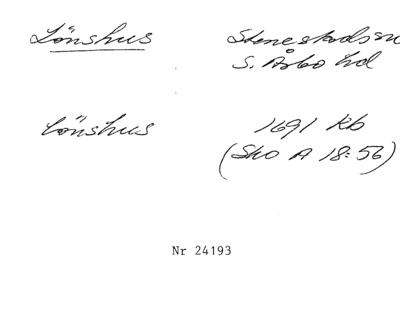 Lönshus
Stenestads sn
S. Åsbo hd
Lönshus
1691 Kb
(Sko A 18:56)
Nr 24193